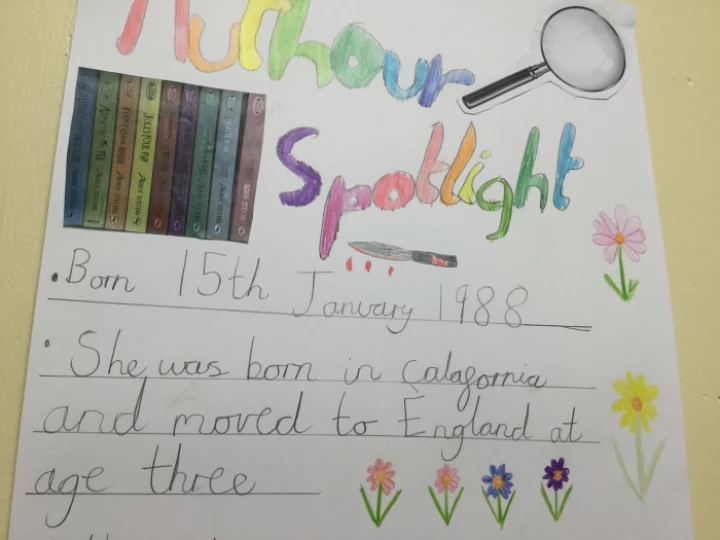 Authour
Spotlight
JOLLY FOUL PLAY
• Born 15th January 1988
• She was born in Calafornia
and moved to England at
age three